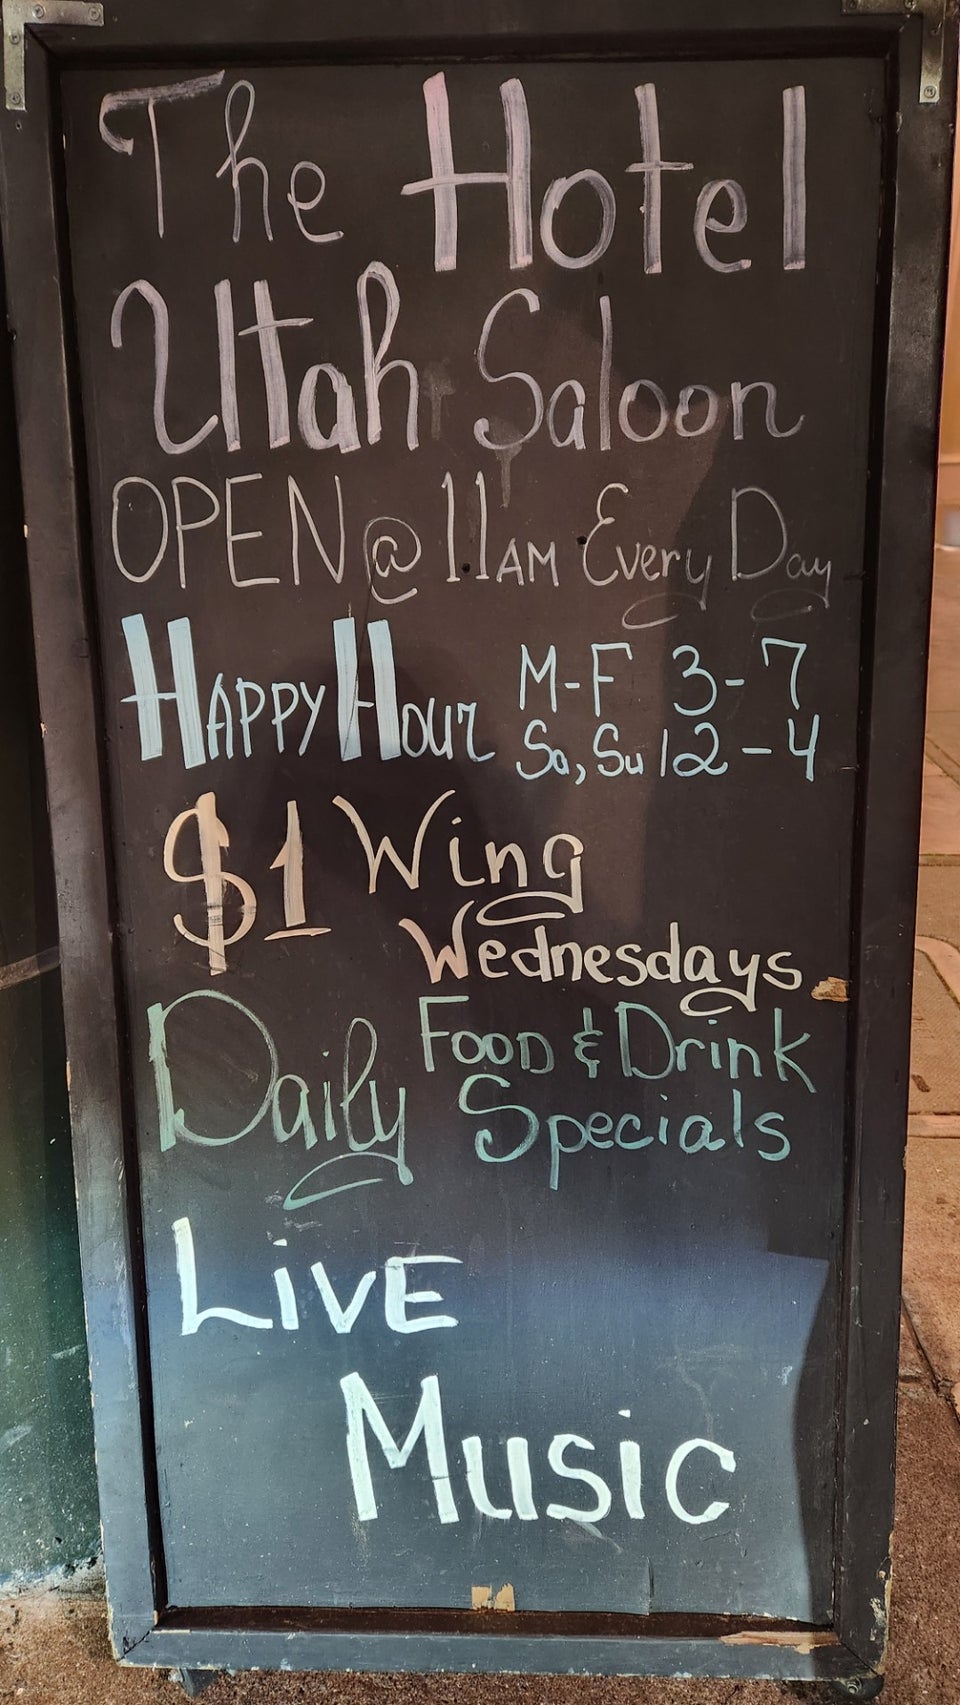 The Hotel
Utah Saloon
OPEN @ 11AM Every Day
HAPPY HOUR M-F 3-7
Sa, Su 12-4
$1 Wing
Wednesdays
Daily Food & Drink
Specials
LiVE
Music